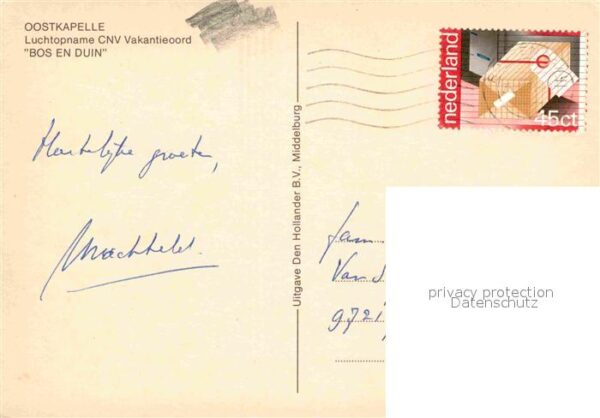 OOSTKAPELLE
Luchtopname CNV Vakantieoord
"BOS EN DUIN"
Hartelijke groeten,
Machteld.
Uitgave Den Hollander B.V., Middelburg
nederland
45ct
fam
Van
9721
privacy protection
Datenschutz